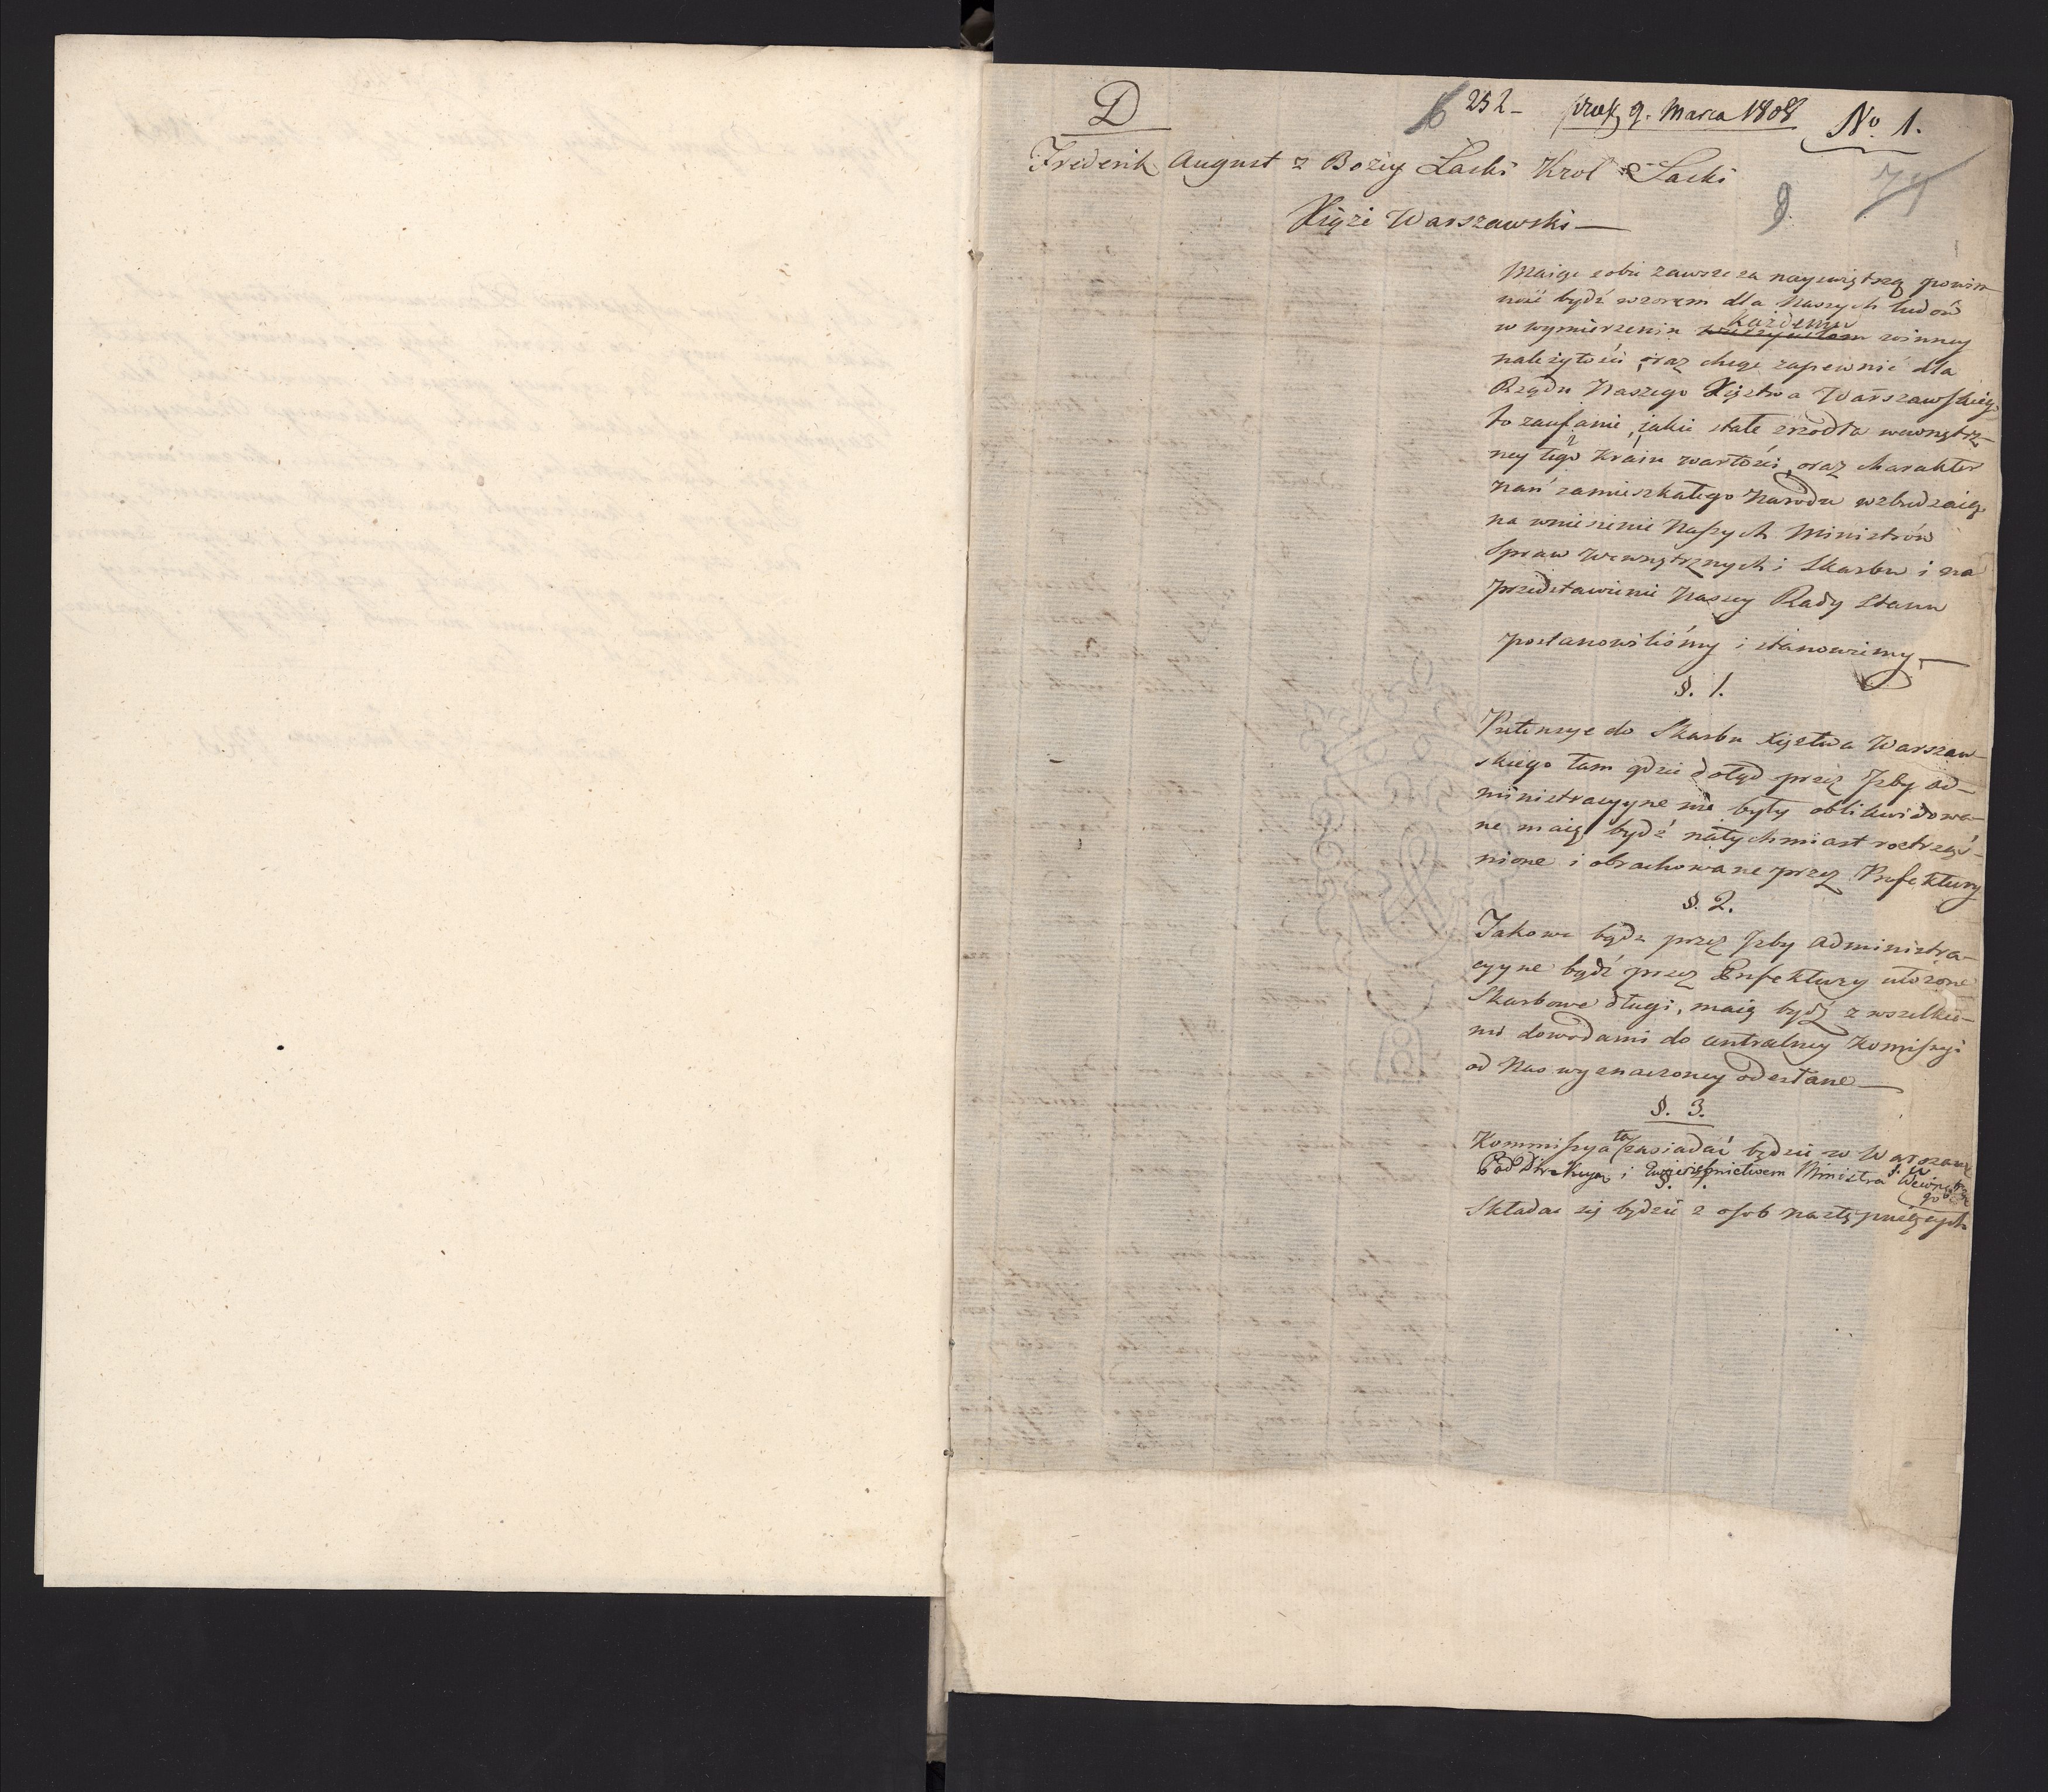 D
252 – praes. 9. Marca 1808 No. 1.
Frederik August z Bożey Łaski Krol Saski
9. 74
Xiąże Warszawski —
Maiąc sobie zawsze za nayświętszą powin-
ność bydź wzorem dla Naszych ludów
w wymierzeniu wszystkim każdemu winney
należytości, oraz chcąc zapewnić dla
Rządu Naszego Xięstwa Warszawskiego
to zaufanie, jakie stałe zrzodła wewnętrz-
ney tego Kraiu wartości, oraz charakter
Nań zamieszkałego Narodu wzbudzaią,
na wniesienie Naszych Ministrów
Spraw Wewnętrznych i Skarbu i na
przedstawienie Naszey Rady Stanu
postanowiliśmy i stanowimy —
§. 1.
Pretensye do Skarbu Xięstwa Warszaw-
skiego tam gdzie dotąd przez Izby ad-
ministracyyne nie były oblikwidowa-
ne maią bydź natychmiast roztrząś-
nione i obrachowane przez Prefektury
§. 2.
Takowe bądź przez Izby administra-
cyyne bądź przez Prefektury ułożone
Skarbowe długi, maią bydź z wszelkie-
mi dowodami do centralney Kommissyi
od Nas wyznaczoney odesłane —
§. 3.
Kommissya ta zasiadać będzie w Warszawie
Pod Direkcyą i Zwierzchnictwem Ministra S. W. Wewnętrznego
Składać się będzie z osob następuiących